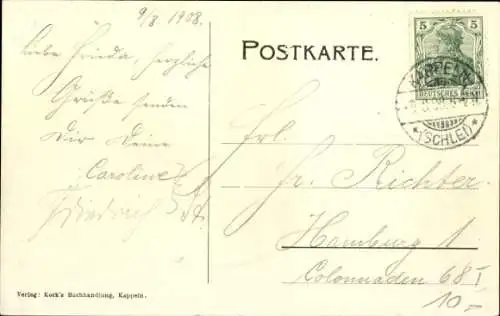 9/8 1908.
Liebe Frieda, herzliche
Grüße senden
Dir Deine
Caroline
Friedrich
POSTKARTE.
5
DEUTSCHES REICH
KAPPELN
* (SCHLEI) *
Frl.
Fr. Richter
Hamburg 1
Colonnaden 68 I
10.-
Verlag: Koch's Buchhandlung, Kappeln.